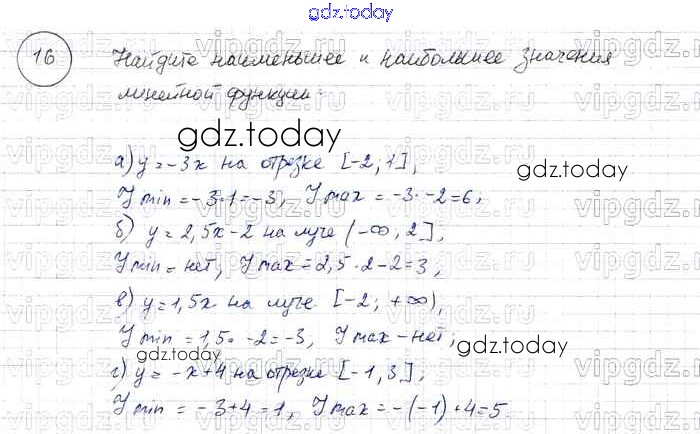 gdz.today
16 Найдите наименьшее и наибольшее значения
линейной функции:
gdz.today
а) y = -3x на отрезке [-2, 1],
gdz.today
Y min = -3·1 = -3, Y max = -3·-2 = 6;
б) y = 2,5x - 2 на луче (-∞, 2];
Y min = нет, Y max = 2,5·2-2 = 3,
в) y = 1,5x на луче [-2; +∞),
Y min = 1,5·-2 = -3, Y max - нет;
gdz.today
gdz.today
г) y = -x+4 на отрезке [-1, 3];
Y min = -3+4 = 1, Y max = -(-1)+4 = 5.
vipgdz.com